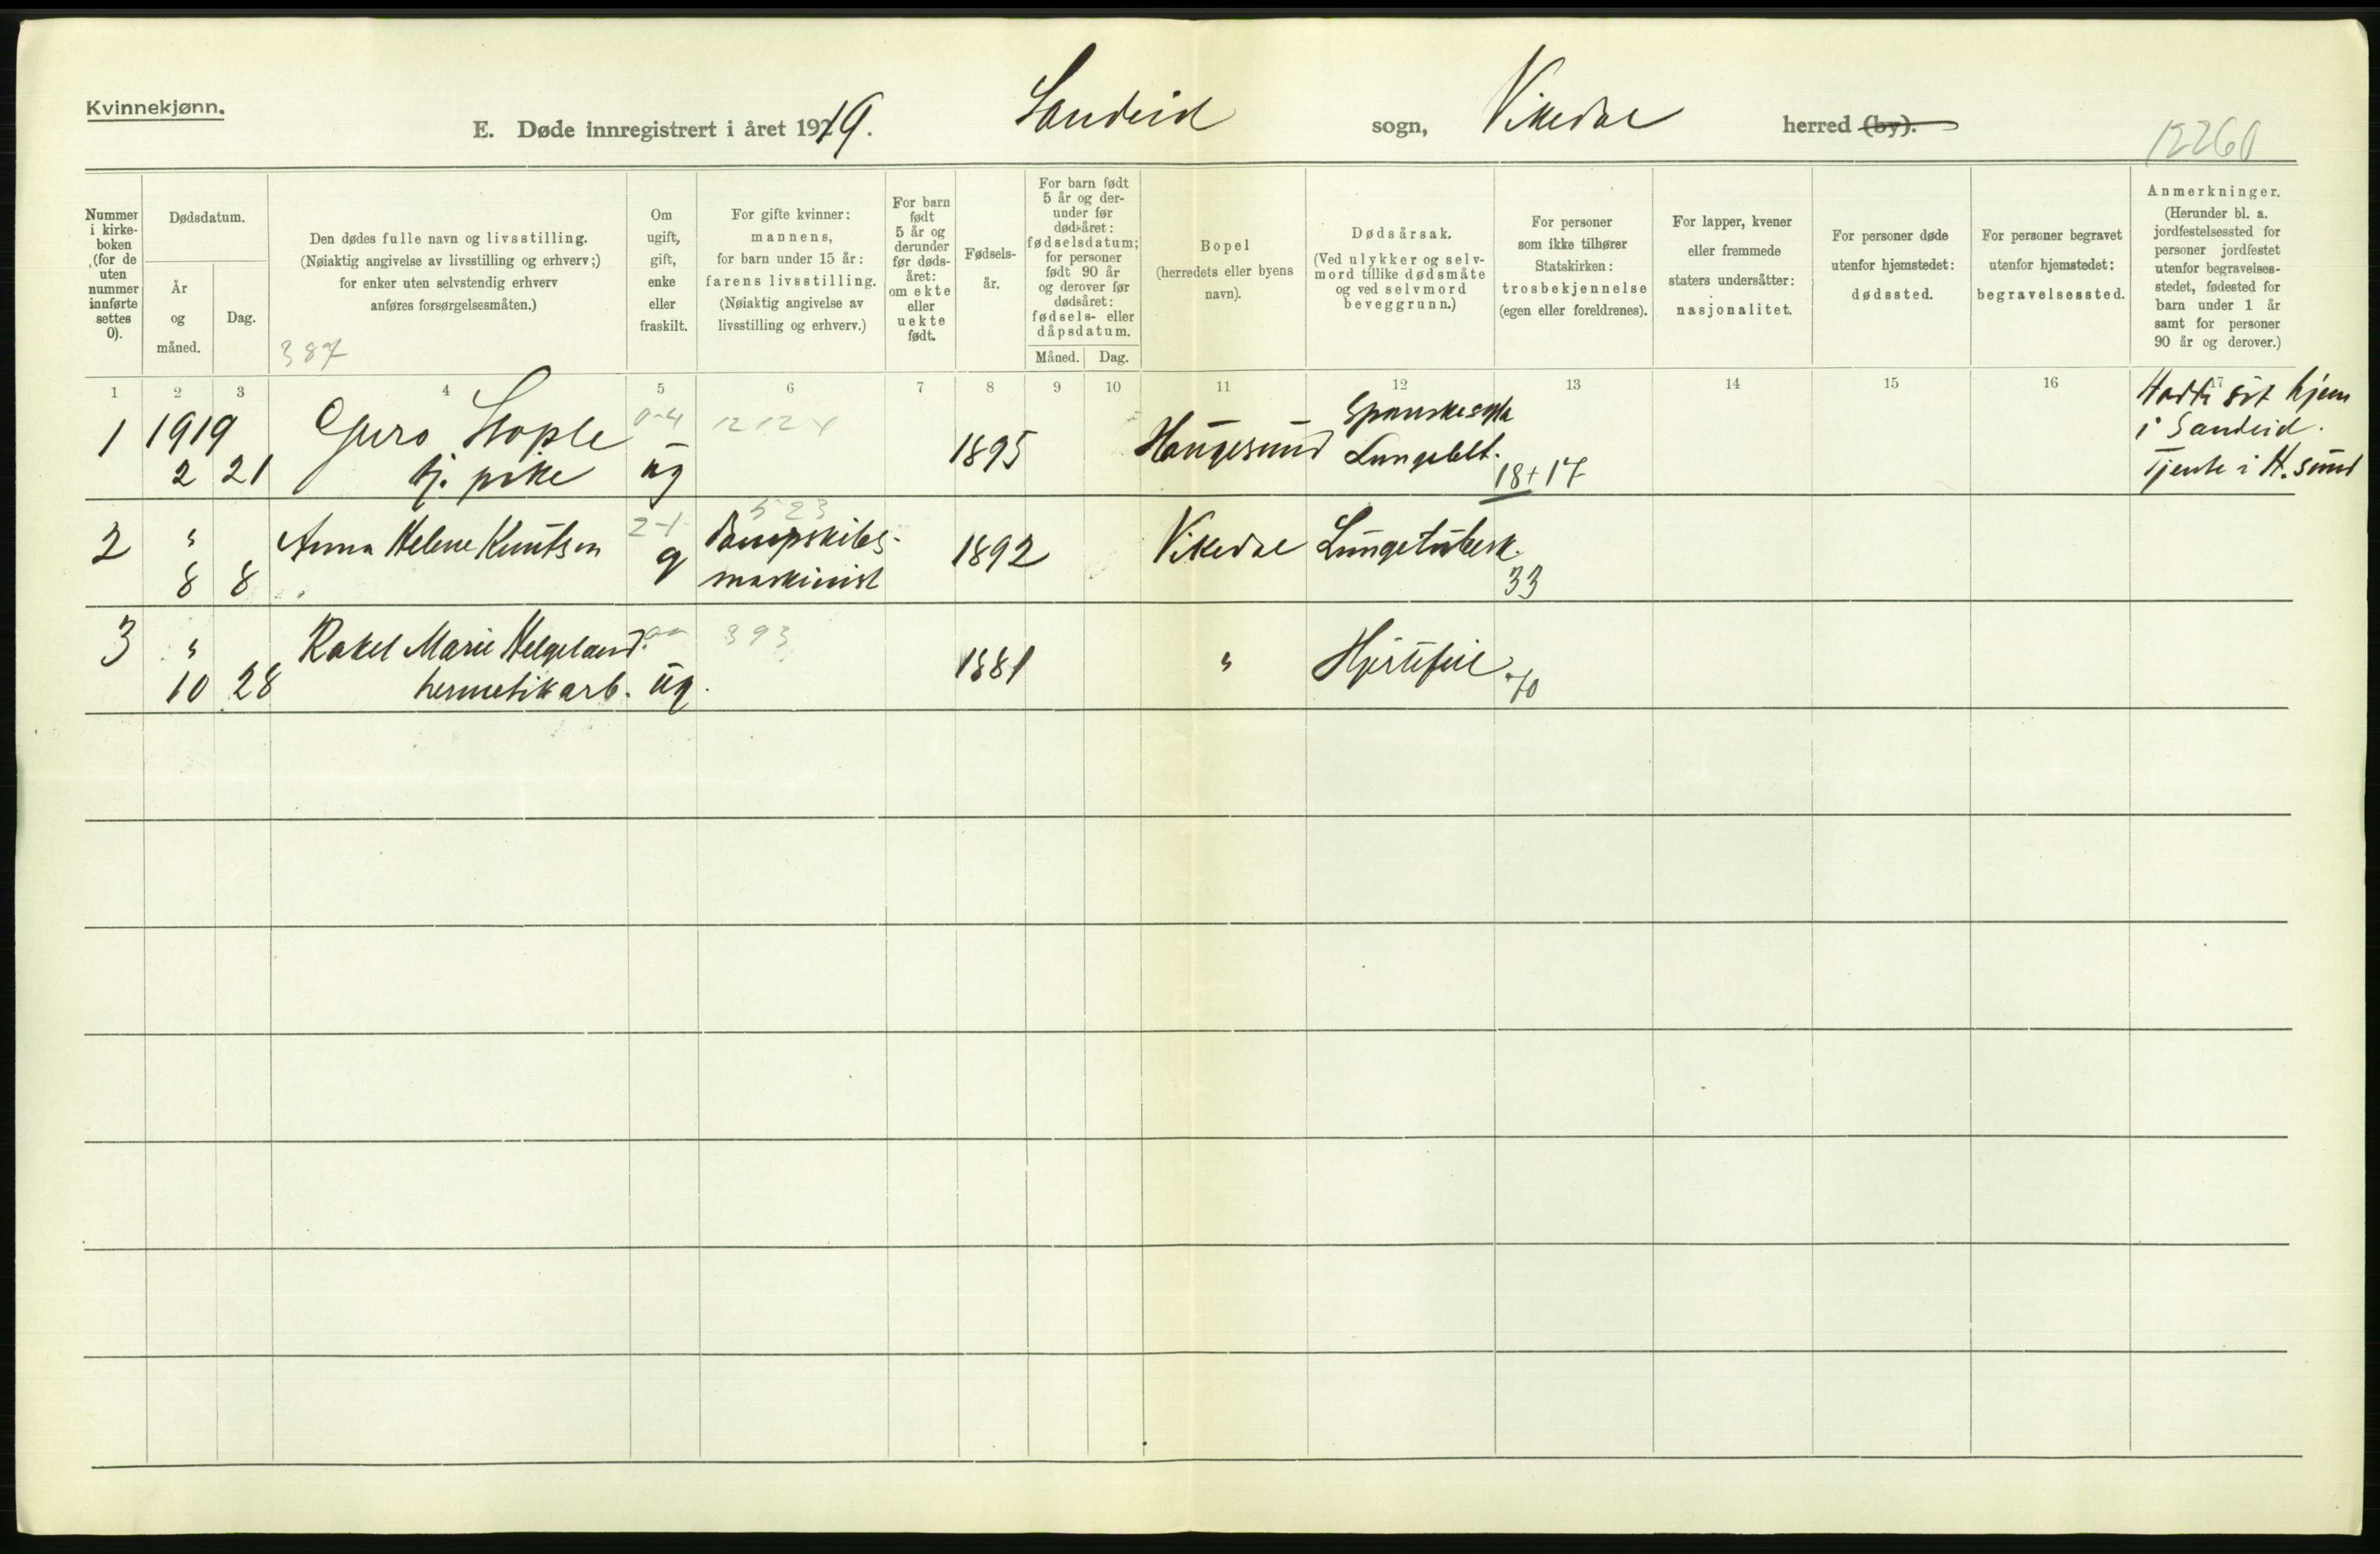 Kvinnekjønn.
E. Døde innregistrert i året 1919.
Sandeid sogn, Vikedal herred (by).
12260
Nummer i kirkeboken (for de uten nummer innførte settes 0).
Dødsdatum.
År og måned.
Dag.
Den dødes fulle navn og livsstilling.
(Nøiaktig angivelse av livsstilling og erhverv;)
for enker uten selvstendig erhverv
anføres forsørgelsesmåten.)
387
Om ugift, gift, enke eller fraskilt.
For gifte kvinner:
mannens,
for barn under 15 år:
farens livsstilling.
(Nøiaktig angivelse av
livsstilling og erhverv.)
For barn født 5 år og derunder før dødsåret: om ekte eller uekte født.
Fødselsår.
For barn født 5 år og derunder før dødsåret: fødselsdatum; for personer født 90 år og derover før dødsåret: fødsels- eller dåpsdatum.
Måned. Dag.
Bopel
(herredets eller byens
navn).
Dødsårsak.
(Ved ulykker og selvmord tillike dødsmåte og ved selvmord beveggrunn.)
For personer
som ikke tilhører
Statskirken:
trosbekjennelse
(egen eller foreldrenes).
For lapper, kvener
eller fremmede
staters undersåtter:
nasjonalitet.
For personer døde
utenfor hjemstedet:
dødssted.
For personer begravet
utenfor hjemstedet:
begravelsessted.
Anmerkninger.
(Herunder bl. a.
jordfestelsessted for
personer jordfestet
utenfor begravelses-
stedet, fødested for
barn under 1 år
samt for personer
90 år og derover.)
1 2 3 4 5 6 7 8 9 10 11 12 13 14 15 16 17
1 1919 Guro Hople 1895 Haugesund Spanskesyka Hadde sit hjem
2 21 tj. pike ug Lungebet. 18+17 i Sandeid.
Tjente i H.sund
2 " Anna Helene Knutsen g Dampskibs- 1892 Vikedal Lungetuberk.
8 8 maskinist 33
523
3 " Rakel Marie Helgeland. 393 1881 " Hjertefeil
10 28 hermetikarb. ug. 70